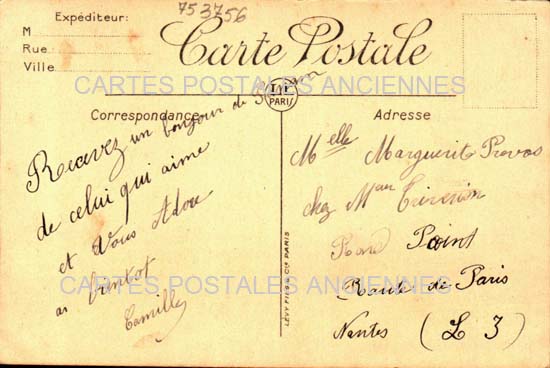 753756
Expéditeur:
M
Rue
Ville
Carte Postale
CARTES POSTALES ANCIENNES
LL
PARIS
Correspondance
Adresse
Recevez un bonjour de
de celui qui aime
et Vous Adore
a bientot
Camille
Melle Marguerit Prevos
chez Mme
Pont
Route de Paris
Nantes (L I)
LEVY FILS & Cie PARIS
CARTES POSTALES ANCIENNES